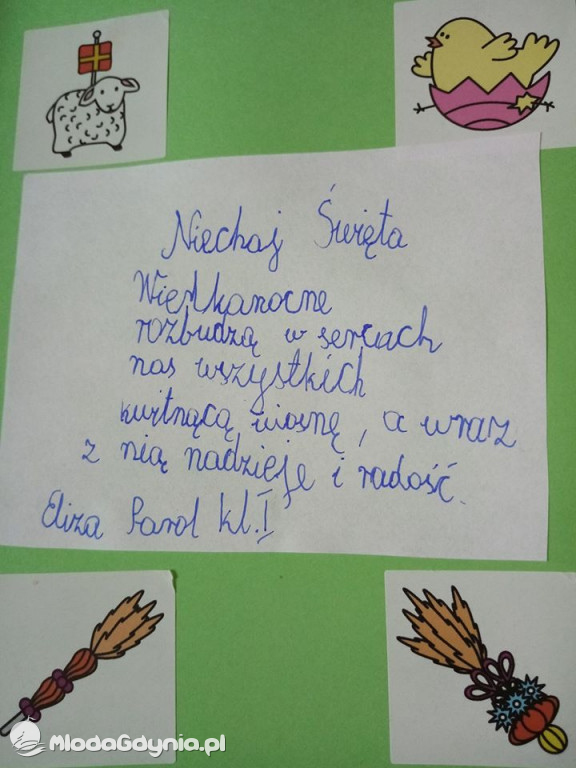 Niechaj Święta
Wielkanocne
rozbudzą w sercach
nas wszystkich
kwitnącą wiosnę, a wraz
z nią nadzieję i radość.
Eliza Parol kl. I
MlodaGdynia.pl